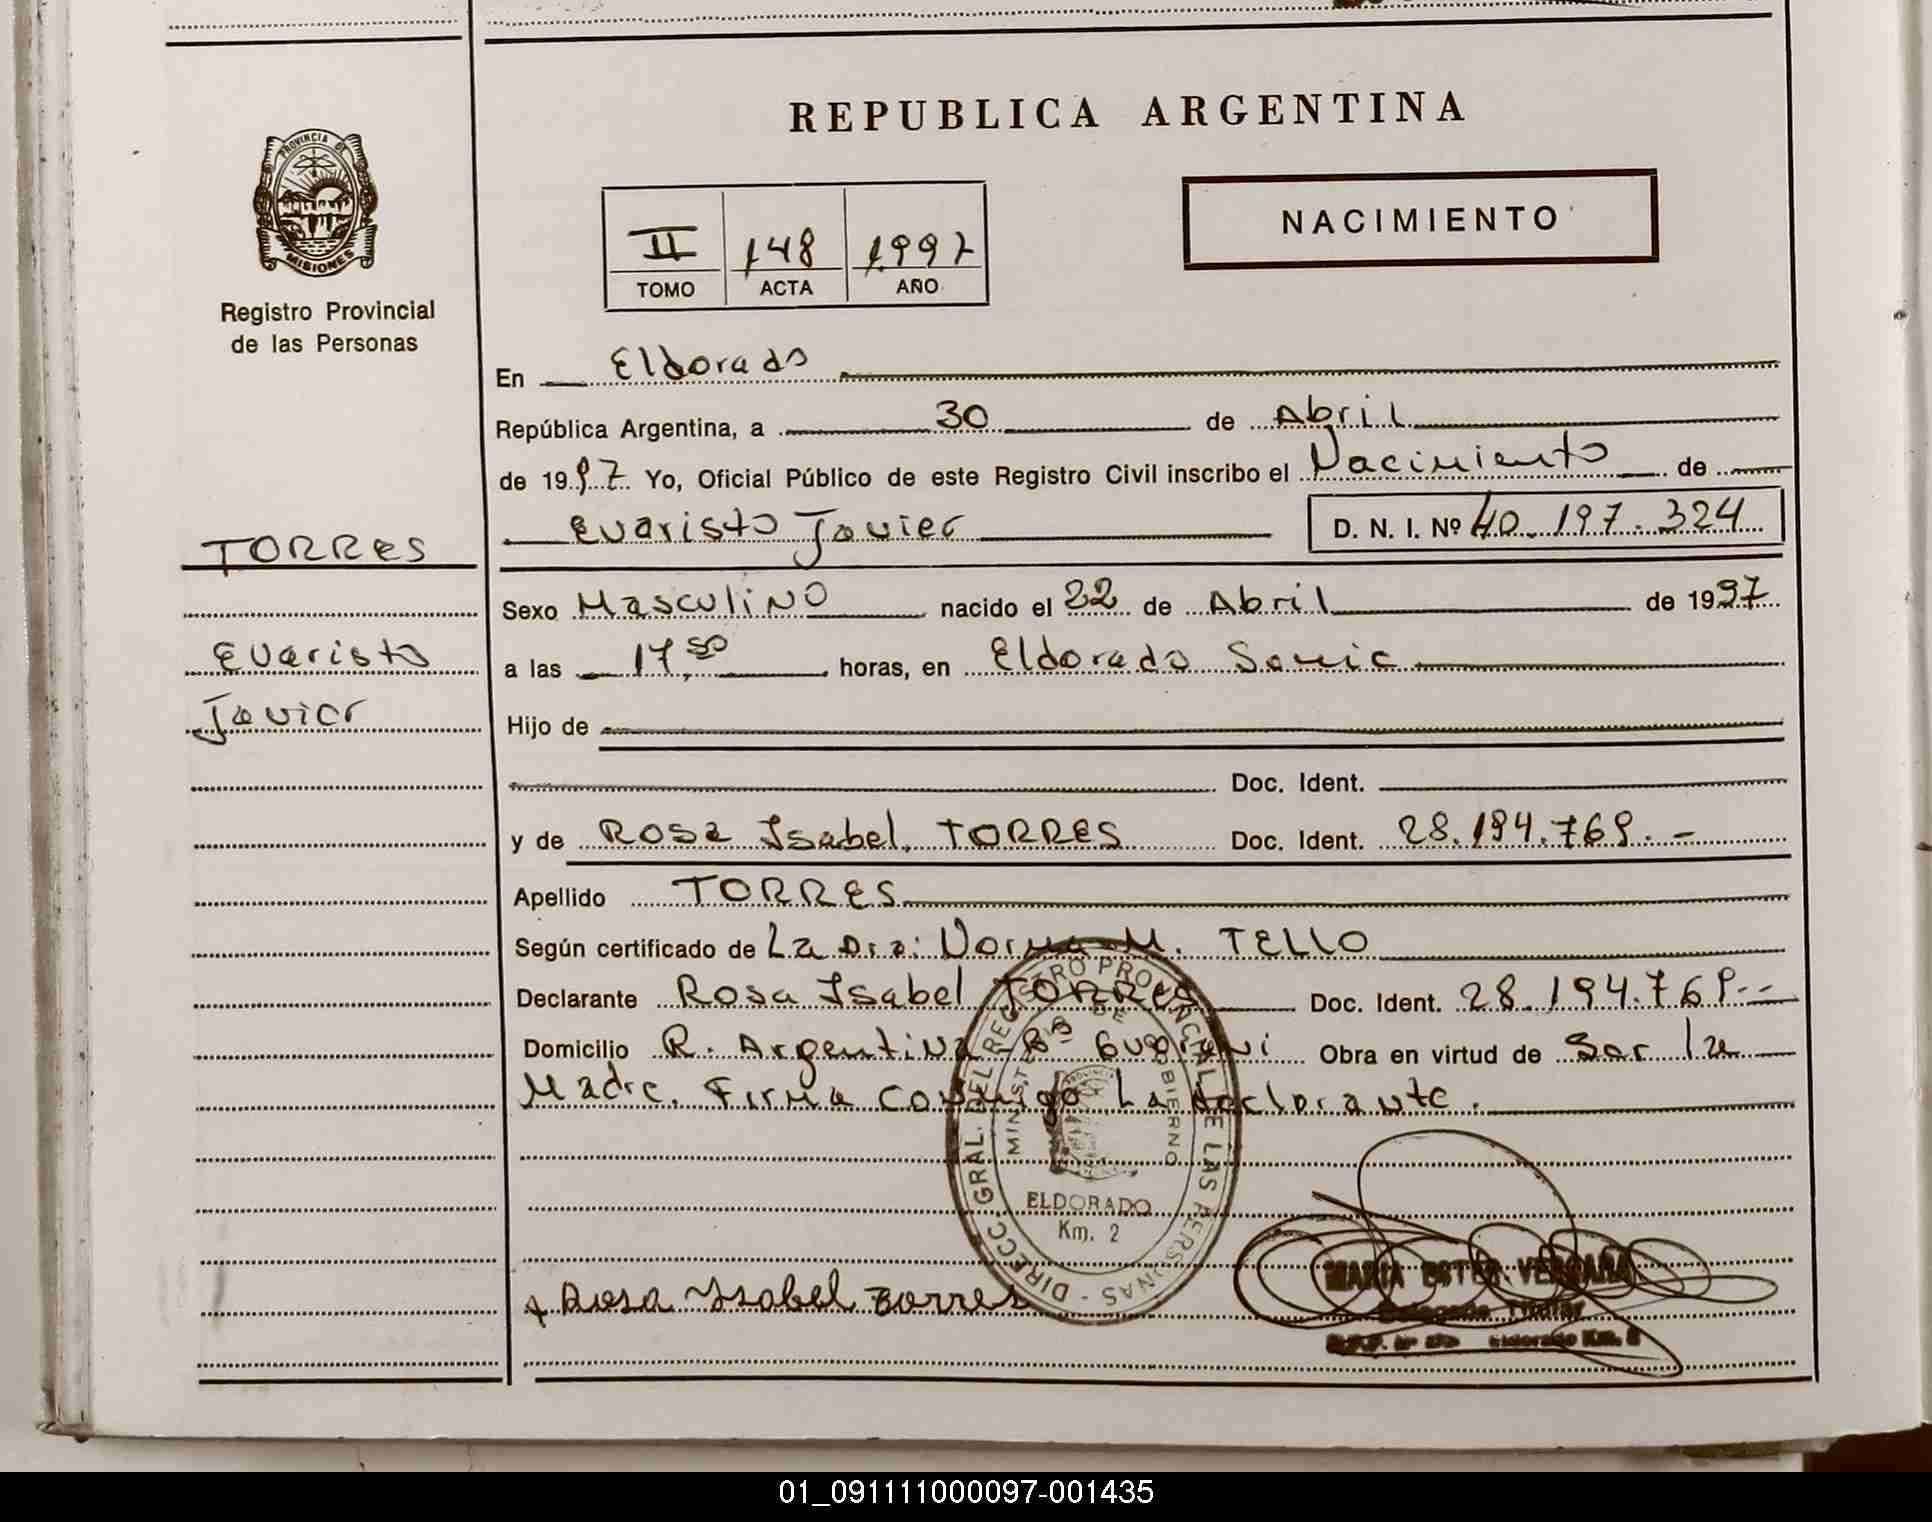 REPUBLICA ARGENTINA
PROVINCIA DE
MISIONES
Registro Provincial
de las Personas
II 148 1997
TOMO ACTA AÑO
NACIMIENTO
En Eldorado
República Argentina, a 30 de Abril
de 1997 Yo, Oficial Público de este Registro Civil inscribo el Nacimiento de
Evaristo Javier D. N. I. Nº 40.197.324
TORRES
Sexo Masculino nacido el 22 de Abril de 1997
Evaristo
a las 17,50 horas, en Eldorado Samic
Javier
Hijo de
Doc. Ident.
y de Rosa Isabel TORRES Doc. Ident. 28.194.769.-
Apellido TORRES
Según certificado de La Dra: Norma M. TELLO
Declarante Rosa Isabel TORRES Doc. Ident. 28.194.769.--
Domicilio R. Argentina Bº Obra en virtud de Ser la
Madre. Firma conmigo La declarante.
DIRECC. GRAL. DEL REGISTRO PROVINCIAL DE LAS PERSONAS -
MINISTERIO DE GOBIERNO
ELDORADO
Km. 2
x Rosa Ysabel Torres
MARIA ESTER VERGARA
Delegada Titular
Eldorado Km. 2
01_091111000097-001435